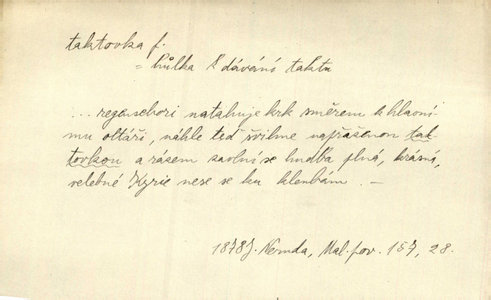 taktovka f.
= hůlka k dávání taktu
... regenschori natahuje krk směrem k hlavní-
mu oltáři, náhle teď švihne napřaženou tak-
tovkou a rázem zavlní se hudba plná, krásná,
velebné Kyrie nese se ku klenbám. –
1878 J. Neruda, Mal. pov. 157, 28.